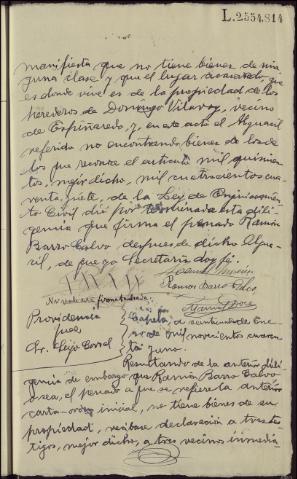 L.2554.814
manifiesta que no tiene bienes de nin
guna clase y que el lugar acasarado, que
es donde vive es de la propiedad de los
herederos de Domingo Vilavoy, vecino
de Espiñaredo y, en este acto el Alguacil
referido no encontrando bienes de los de
los que reviste el artículo mil quinien
tos, mejor dicho, mil cuatrocientos cua
renta y siete, de la Ley de Enjuiciamien
to Civil dió por terminada esta dili
gencia que firma el penado Ramón
Barro Calvo, despues de dicho Algua
cil, de que yo Secretario doy fé.
Ramon Barro Calvo
No vale entre
Providencia
Juez
Sr. Seijo Corral
a veintiuno de Ene
ro de mil novecientos cuaren
ta y uno.
Resultando de la anterior dili
gencia de embargo que Ramón Barro Calvo
osea, el penado a que se refiere la anterior
carta-orden inicial, no tiene bienes de su
propiedad, recibase declaración a tres tes
tigos, mejor dicho, a tres vecinos inmedia